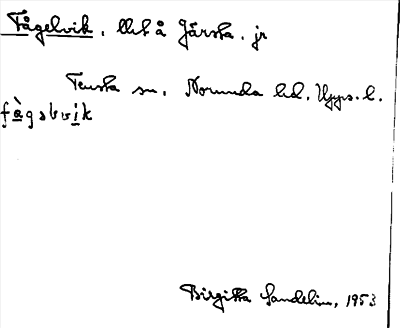 Fågelvik, llet å Järsta. jr
Tensta sn, Norunda hd. Upps. l.
fàgəlvik
Birgitta Sandelin, 1953